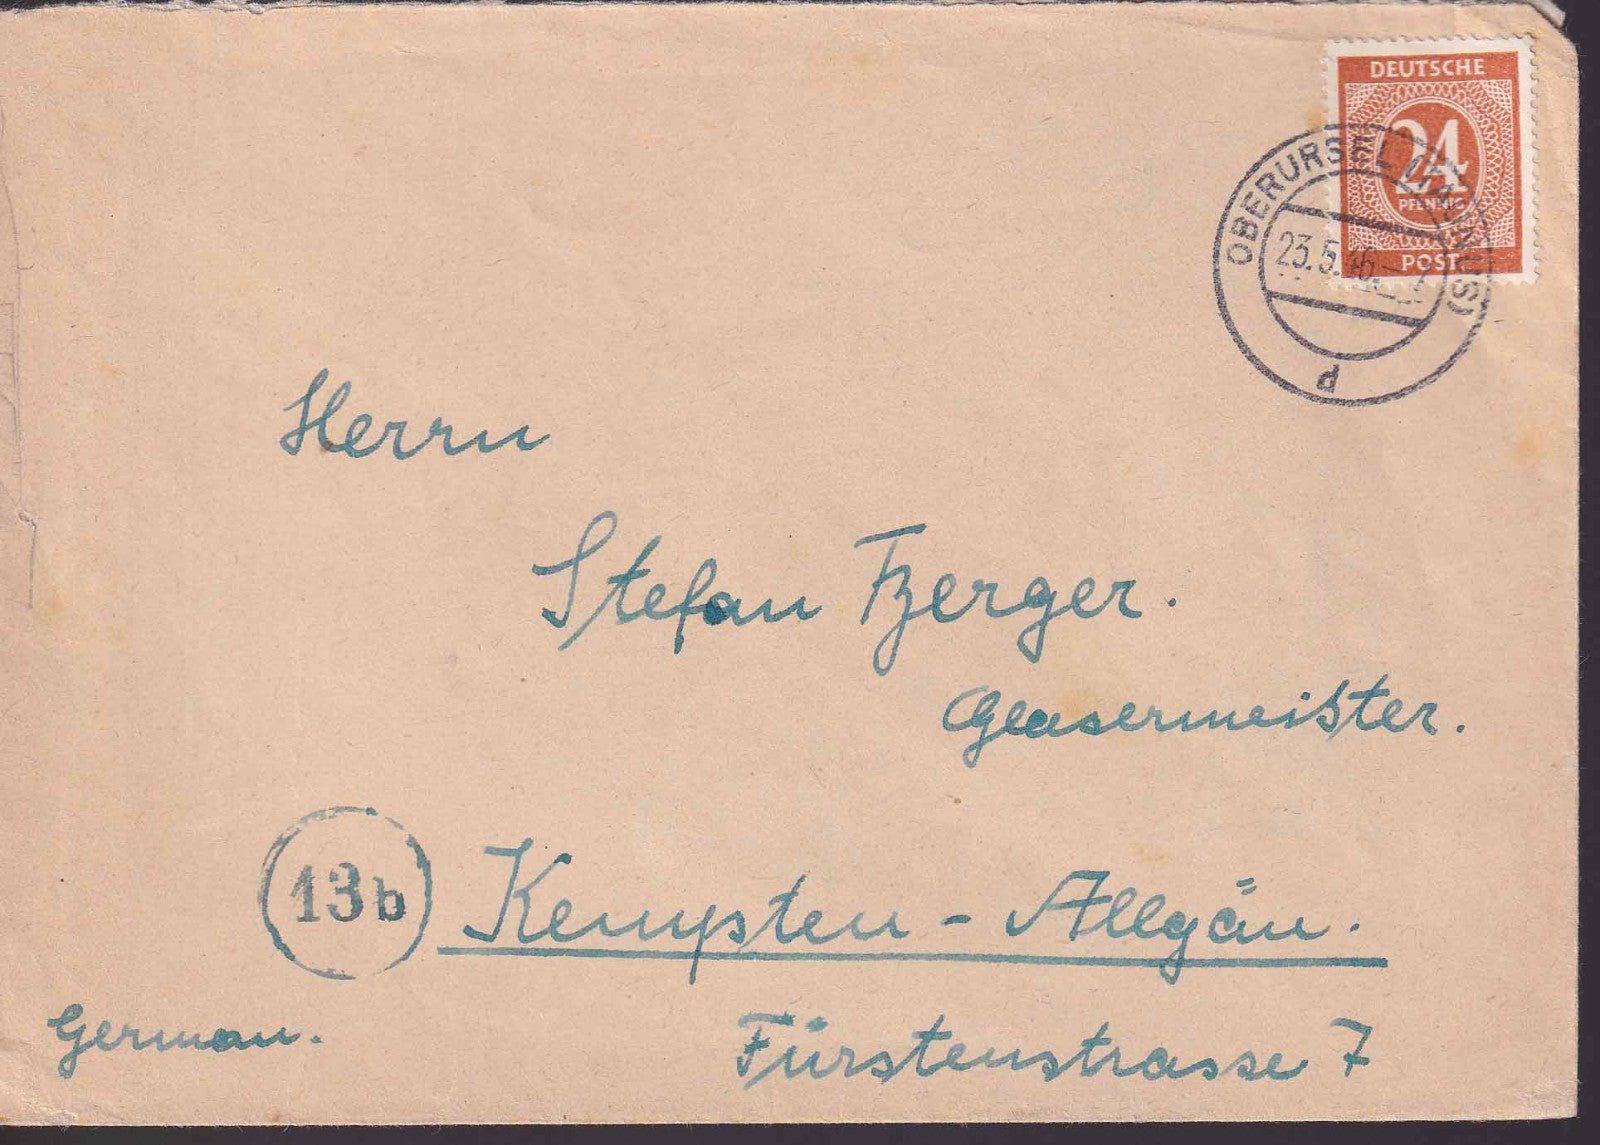 DEUTSCHE
24
PFENNIG
POST
OBERURSEL (TAUNUS)
23.5.46.
d
Herrn
Stefan
Glasermeister.
13b
Kempten - Allgäu.
German.
Fürstenstrasse 7